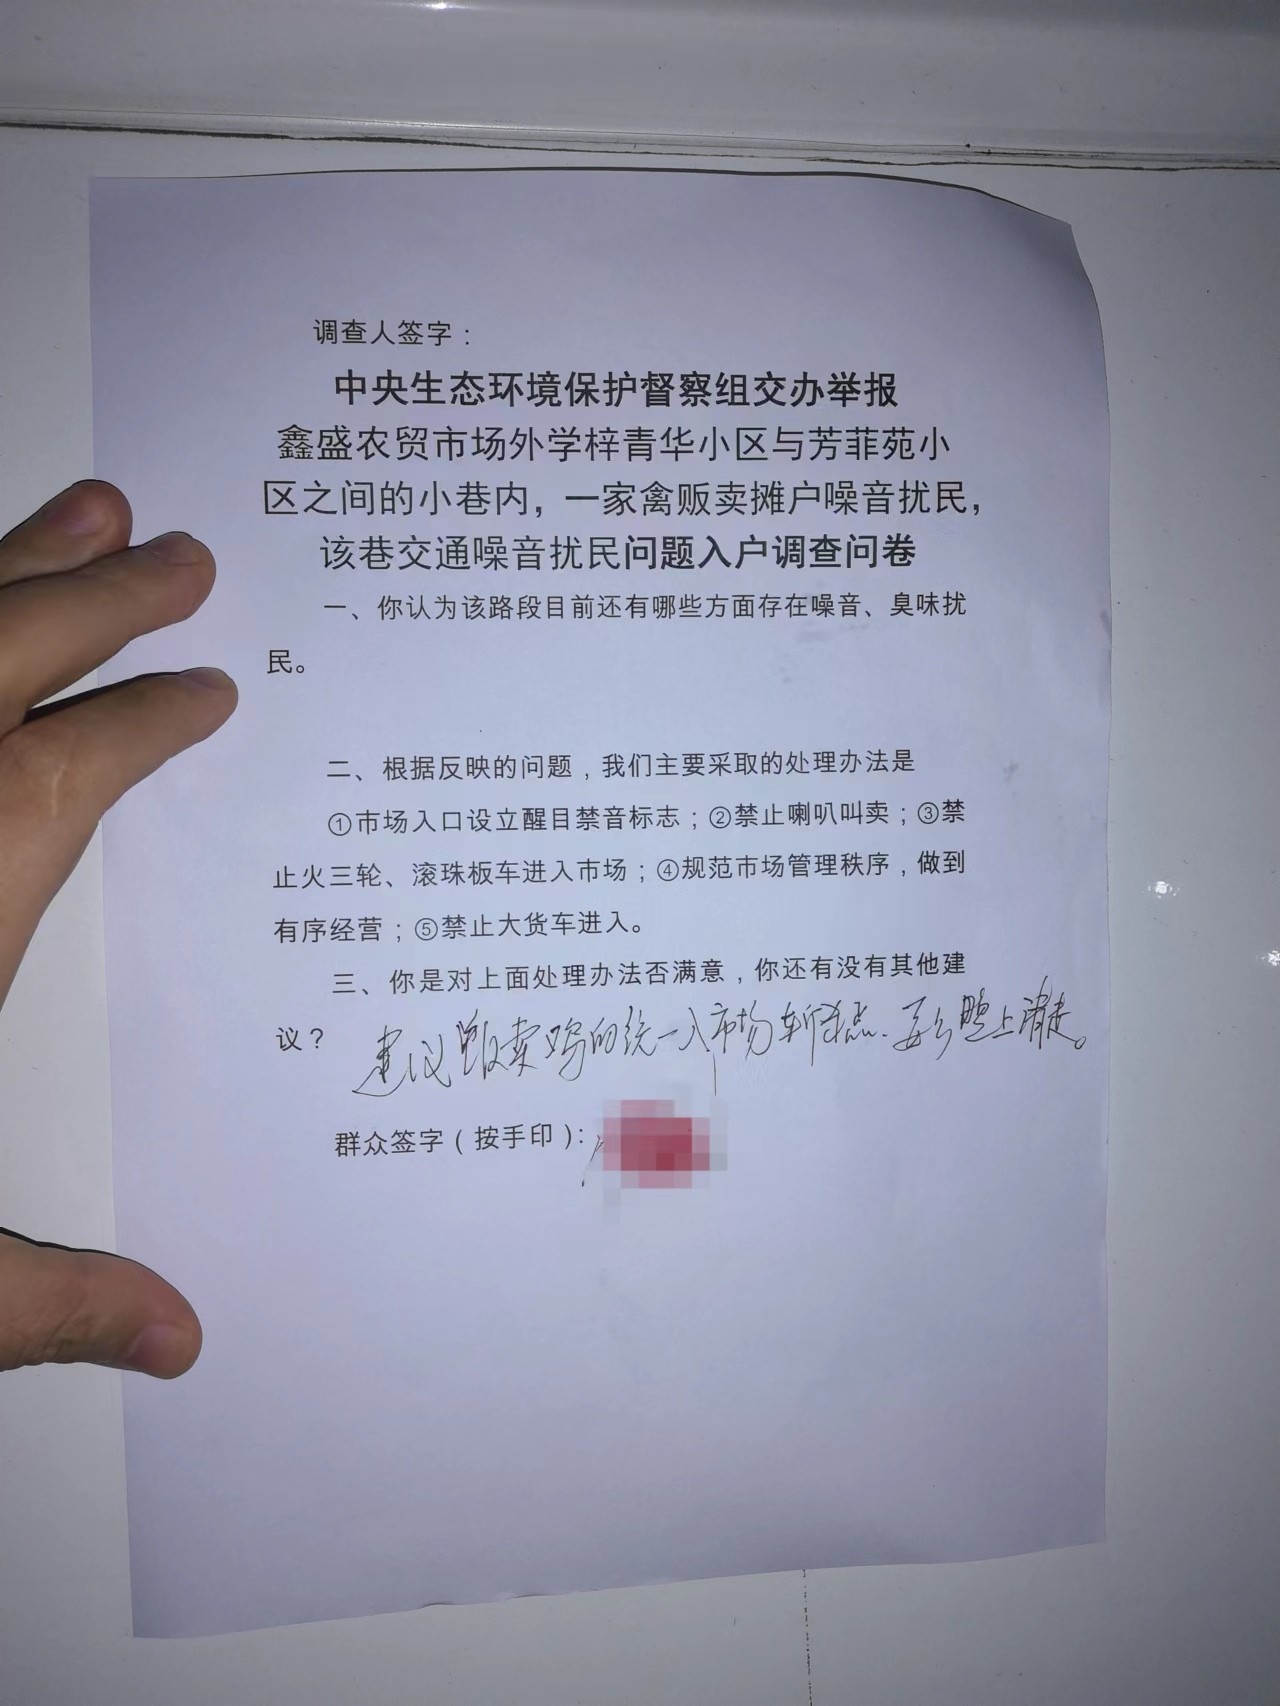 调查人签字：
中央生态环境保护督察组交办举报
鑫盛农贸市场外学梓青华小区与芳菲苑小
区之间的小巷内，一家禽贩卖摊户噪音扰民，
该巷交通噪音扰民问题入户调查问卷
一、你认为该路段目前还有哪些方面存在噪音、臭味扰
民。
二、根据反映的问题，我们主要采取的处理办法是
①市场入口设立醒目禁音标志；②禁止喇叭叫卖；③禁
止火三轮、滚珠板车进入市场；④规范市场管理秩序，做到
有序经营；⑤禁止大货车进入。
三、你是对上面处理办法否满意，你还有没有其他建
议？
建议贩卖鸡的统一入市场
群众签字（按手印）：